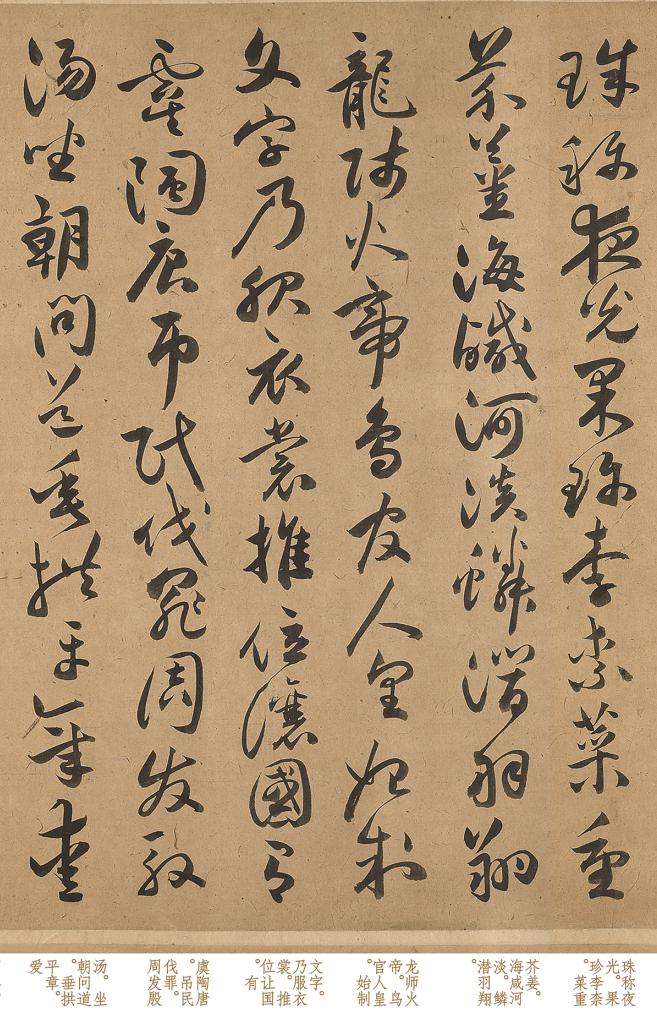 珠称夜光果珍李柰菜重
芥薑海鹹河淡鱗潛羽翔
龍師火帝鳥官人皇始制
文字乃服衣裳推位讓國有
虞陶唐弔民伐罪周发殷
湯坐朝問道垂拱平章愛
珠称夜
光。果
珍李柰
。菜重
芥姜。
海咸河
淡。鳞
潜羽翔
龙师火
帝。鸟
官人皇
。始制
文字。
乃服衣
裳。推
位让国
。有
虞陶唐
。吊民
伐罪。
周发殷
汤。坐
朝问道
。垂拱
平章。
爱